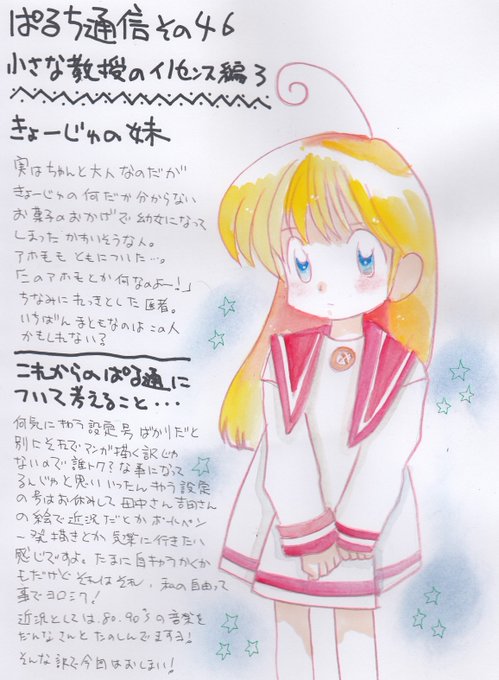 ぱるち通信その46
小さな教授のイノセンス編3
きょーじゅの妹
実はちゃんと大人なのだが
きょーじゅの何だか分からない
お菓子のおかげで幼女になって
しまったかわいそうな人。
アホ毛もともについた…。
「このアホ毛とか何なのよー!」
ちなみにれっきとした医者。
いちばんまともなのはこの人
かもしれない3
これからのぱる通に
ついて考えること・・・
何気にキャラ設定号ばかりだと
別にそれでマンガ描く訳じゃ
ないので誰トク?な事になって
るんじゃと思いいったんキャラ設定
の号はお休みして田中さん吉田さん
の絵で近況だとかボールペン
一発描きとか気楽に行きたい
感じですよ。たまに自キャラかくか
もだけどそれはそれ、私の自由って
事でヨロシク!
近況としては80.90'sの音楽を
だんなさんとたのしんでますヨ!
そんな訳で今回はおしまい!